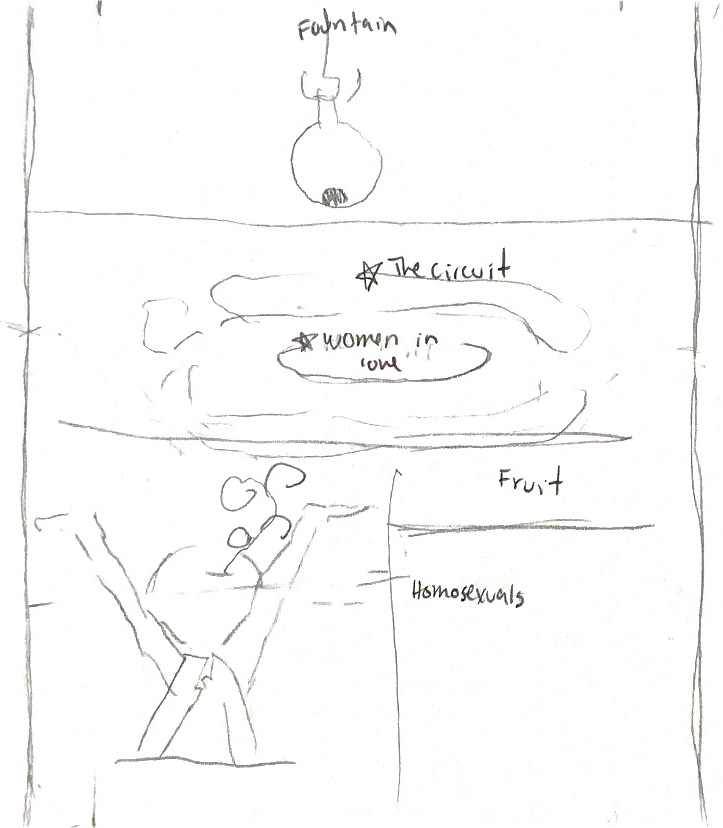 Fountain
The circuit
women in
love
Fruit
Homosexuals